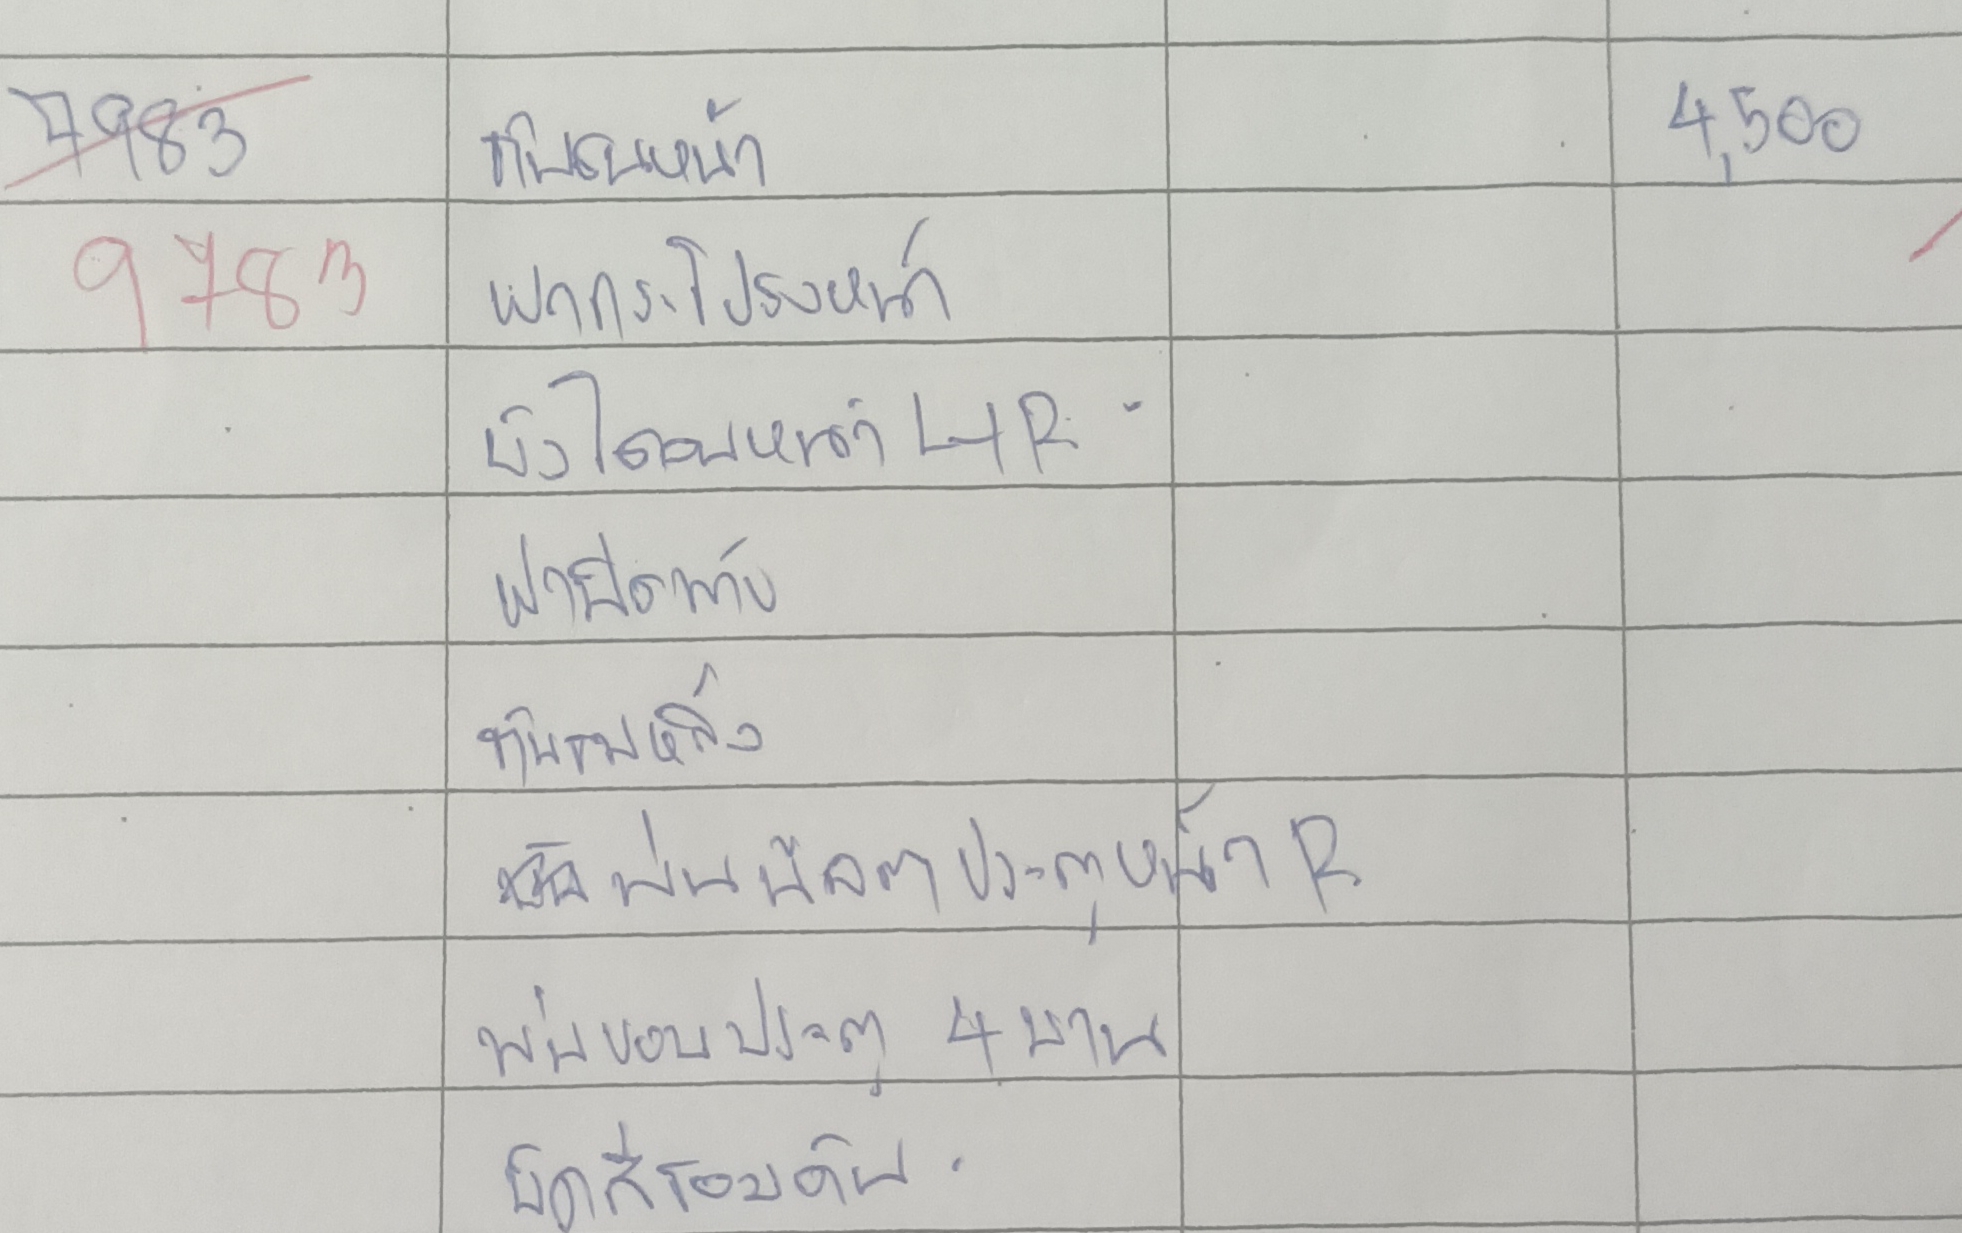 7983 กันชนหน้า 4,500
9783 ฝากระโปรงหน้า
บังโคลนหน้า L+R
ฝาปิดถัง
กันชนหลัง
พ่น ประตูหน้า R
พ่นขอบประตู 4 บาน
ขัดสีรอบคัน